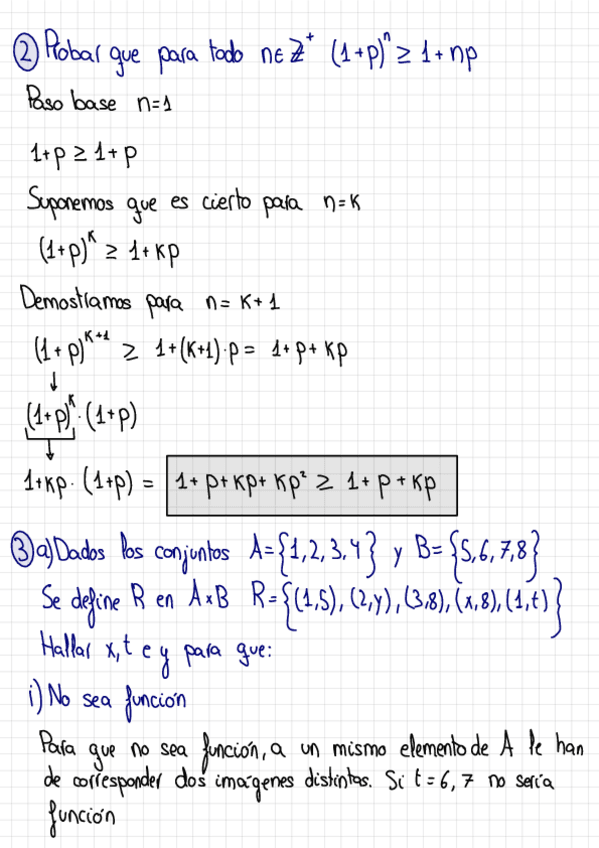 ② Probar que para todo n∈Z⁺ (1+p)ⁿ ≥ 1+np
Paso base n=1
1+p ≥ 1+p
Suponemos que es cierto para n=K
(1+p)ᴷ ≥ 1+Kp
Demostramos para n= K+1
(1+p)ᴷ⁺¹ ≥ 1+(K+1)·p = 1+p+Kp
↓
(1+p)ᴷ·(1+p)
↓
1+Kp·(1+p) = 1+p+Kp+Kp² ≥ 1+p+Kp
③ a) Dados los conjuntos A={1,2,3,4} y B={5,6,7,8}
Se define R en A×B R={(1,5),(2,y),(3,8),(x,8),(1,t)}
Hallar x,t e y para que:
i) No sea función
Para que no sea función, a un mismo elemento de A le han
de corresponder dos imágenes distintas. Si t=6,7 no sería
función